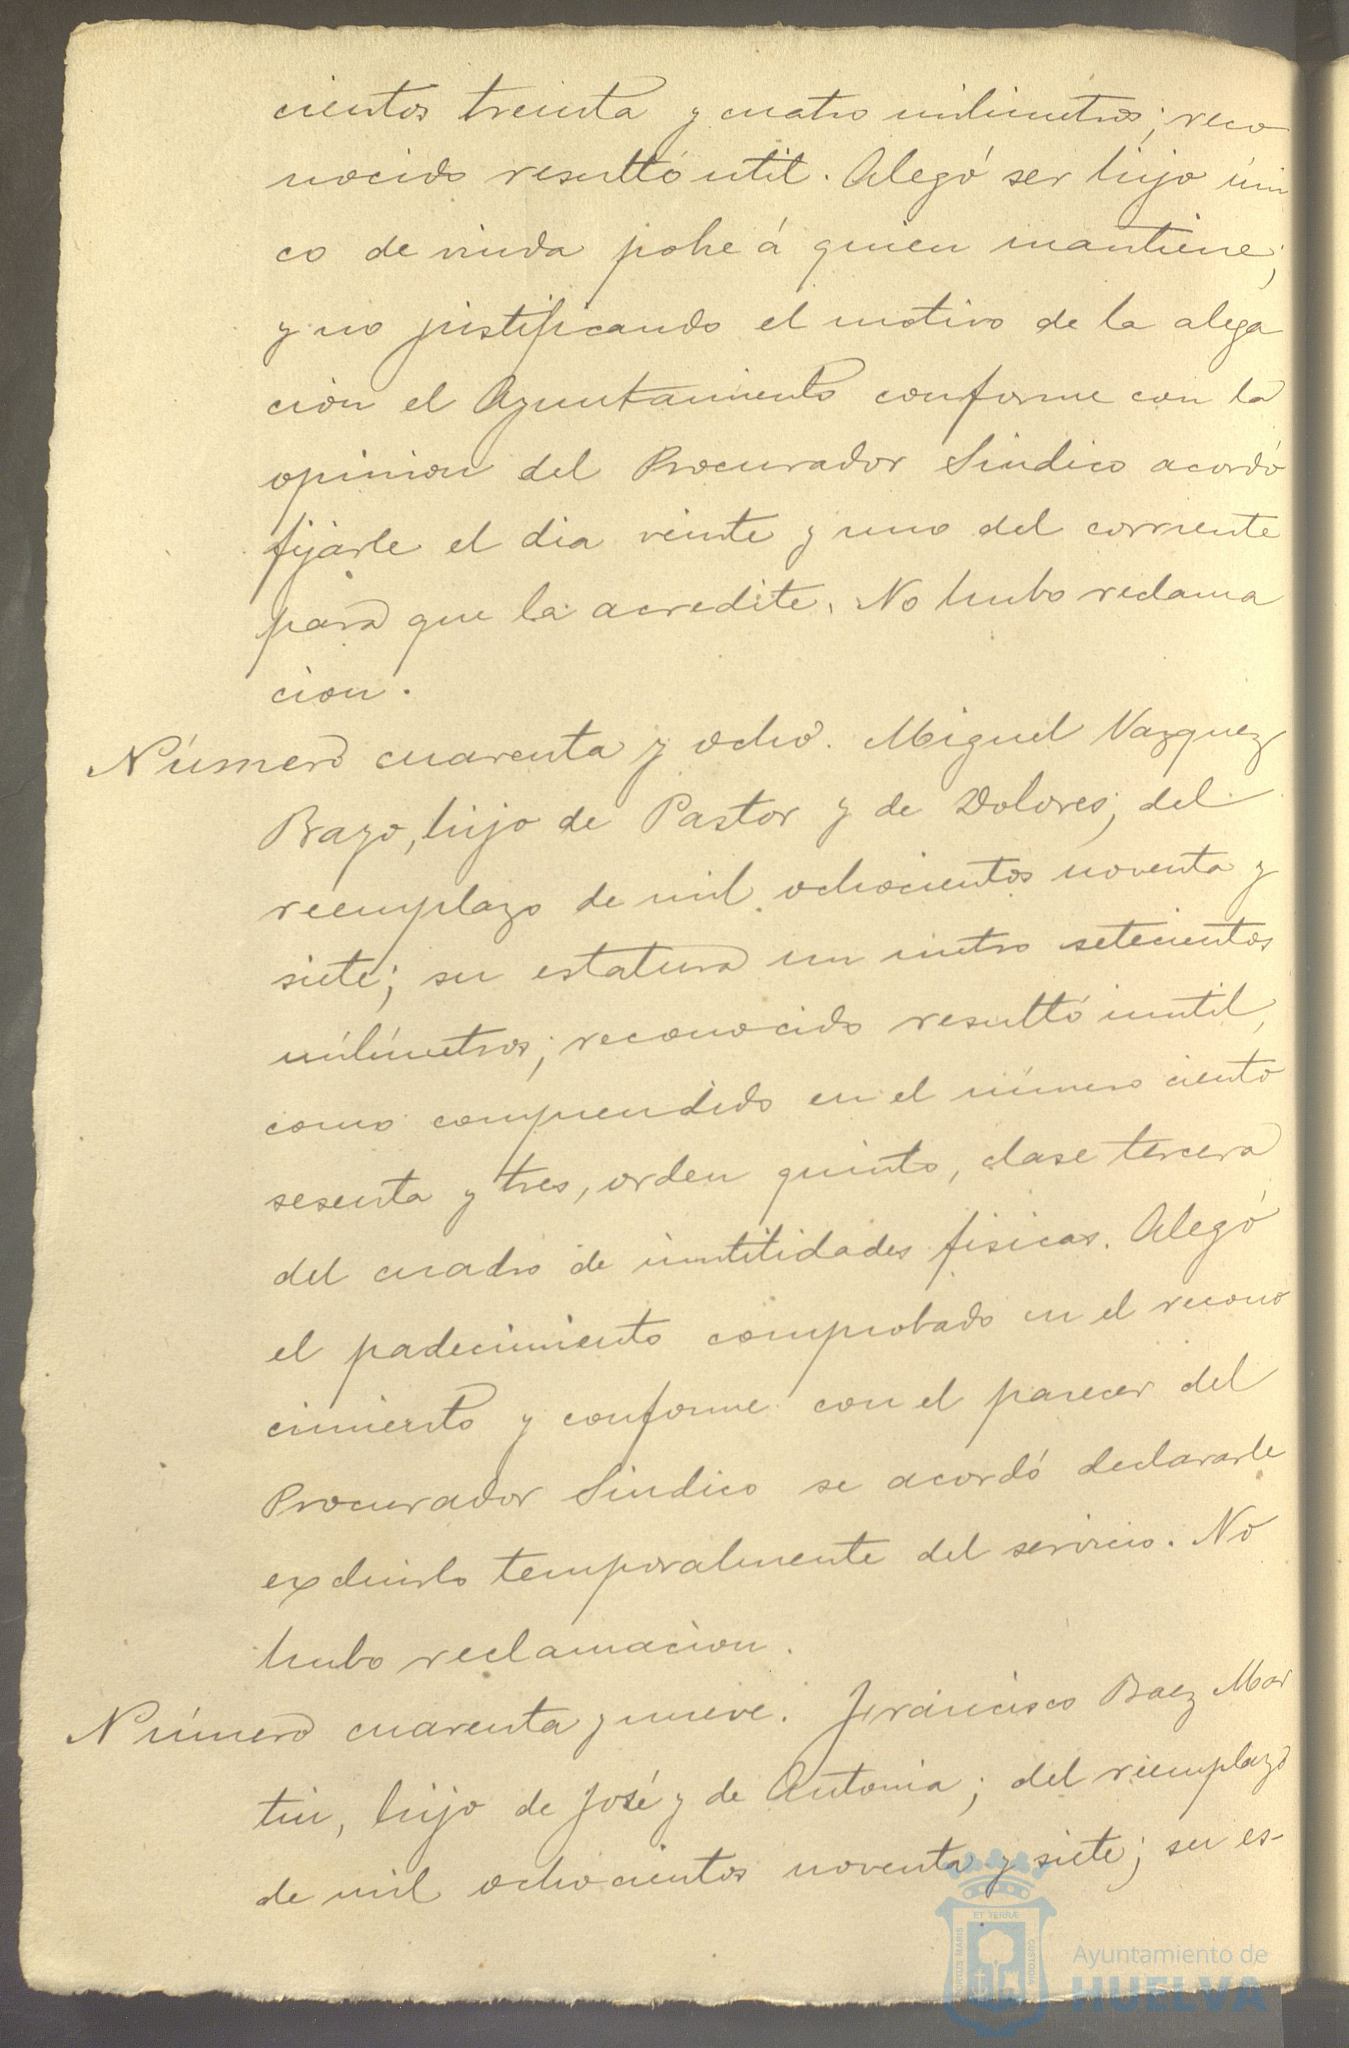 cientos treinta y cuatro milimetros; reco
nocido resultó util. Alegó ser hijo úni
co de viuda pobre á quien mantiene;
y no justificando el motivo de la alega
cion el Ayuntamiento conforme con la
opinion del Procurador Sindico acordó
fijarle el dia veinte y uno del corriente
para que la acredite. No hubo reclama
cion.
Número cuarenta y ocho. Miguel Vazquez
Bayo, hijo de Pastor y de Dolores; del
reemplazo de mil ochocientos noventa y
siete; su estatura un metro setecientos
milímetros; reconocido resultó inutil,
como comprendido en el número ciento
sesenta y tres, orden quinto, clase tercera
del cuadro de inutilidades fisicas. Alegó
el padecimiento comprobado en el recono
cimiento y conforme con el parecer del
Procurador Sindico se acordó declararle
excluirlo temporalmente del servicio. No
hubo reclamacion.
Número cuarenta y nueve. Francisco Baez Mar
tin, hijo de José y de Antonia; del reemplazo
de mil ochocientos noventa y siete; su es-
ET TERRÆ
PORTUS MARIS
CUSTODIA
Ayuntamiento de
HUELVA